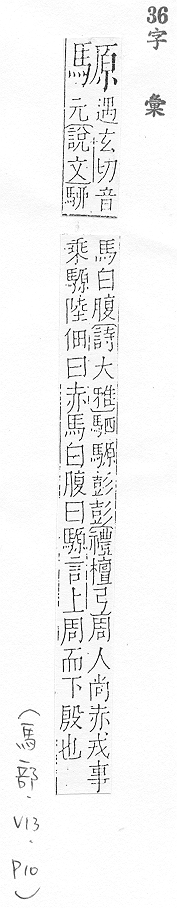 36字彙
騵
遇玄切音
元說文駵
馬白腹詩大雅駟騵彭彭禮檀弓周人尚赤戎事
乘騵陸佃曰赤馬白腹曰騵言上周而下殷也
(馬部.V13.P10)